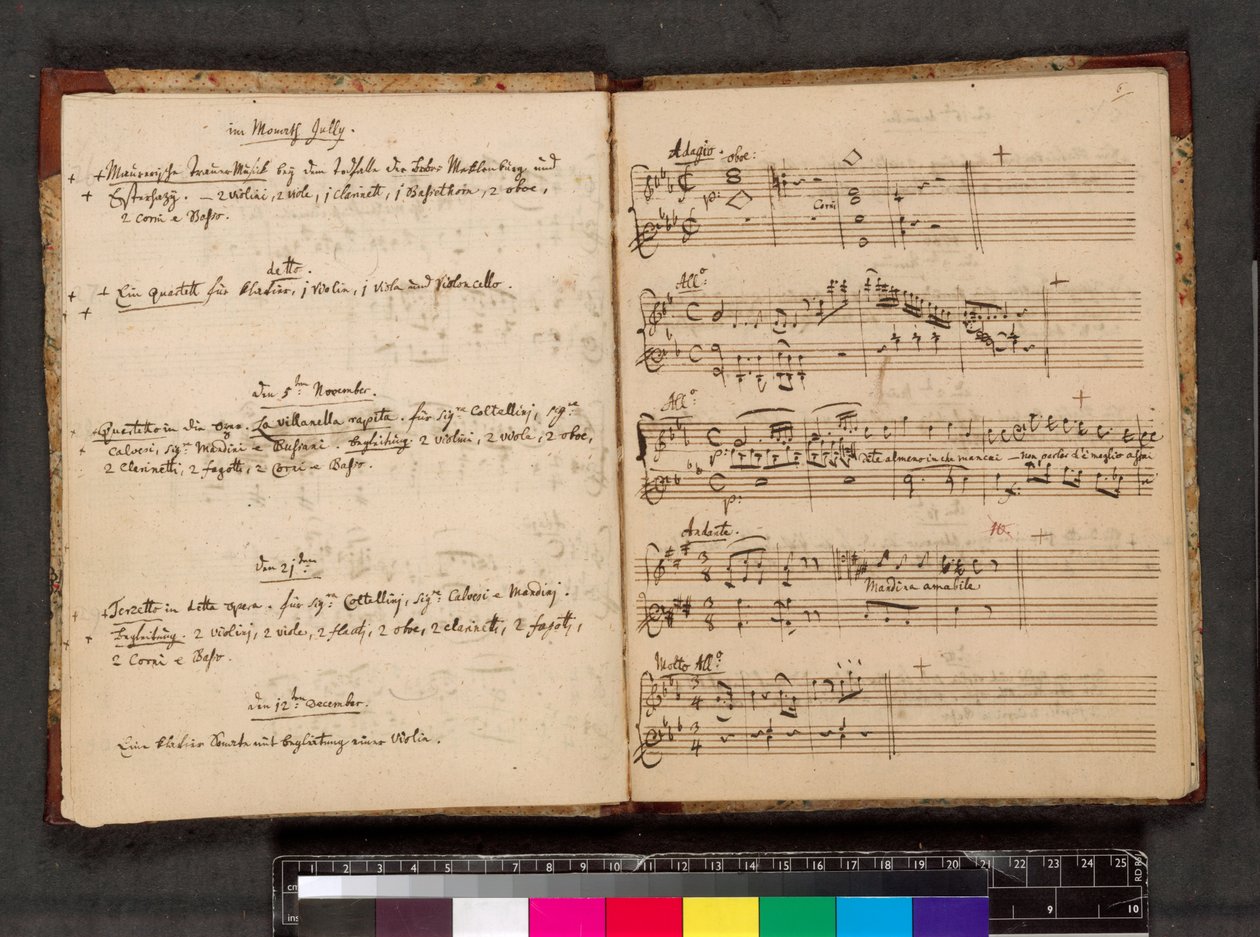 im Monath Jully.
Maurerische Trauer Musik bey dem Todfalle der Brbrr Meklenburg und
Esterhazÿ. — 2 violini, 2 viole, 1 clarinett, 1 Bassethorn, 2 oboe,
2 Corni e Basso.
detto.
Ein Quartett für klavier, 1 violin, 1 viola und violoncello.
Den 5:ten November.
Quartetto in die opera. La villanella rapita. für Sig:ra Coltellinj, Sig:re
Calvesi, Sig:re Mandini e Bussani. begleitung. 2 violini, 2 viole, 2 oboe,
2 Clarinetti, 2 fagotti, 2 Corni e Basso.
den 21:ten
Terzetto in detta opera. für Sig:ra Coltellinj, Sig:re Calvesi e Mandinj.
Begleitung. 2 violinj, 2 viole, 2 flautj, 2 oboe, 2 clarinetti, 2 fagottj,
2 Corni e Basso.
den 12:ten December.
Eine klavier Sonate mit begleitung einer violin.
6
Adagio. oboe:
p:
Corni
All:o
All:o
p:
Dite almeno in che mancai — non parlar ch'è meglio assai
p:
Andante.
Mandina amabile
Molto All:o
3
4
3
4
cm 1 2 3 4 5 6 7 8 9 10 11 12 13 14 15 16 17 18 19 20 21 22 23 24 25
ins 9 10